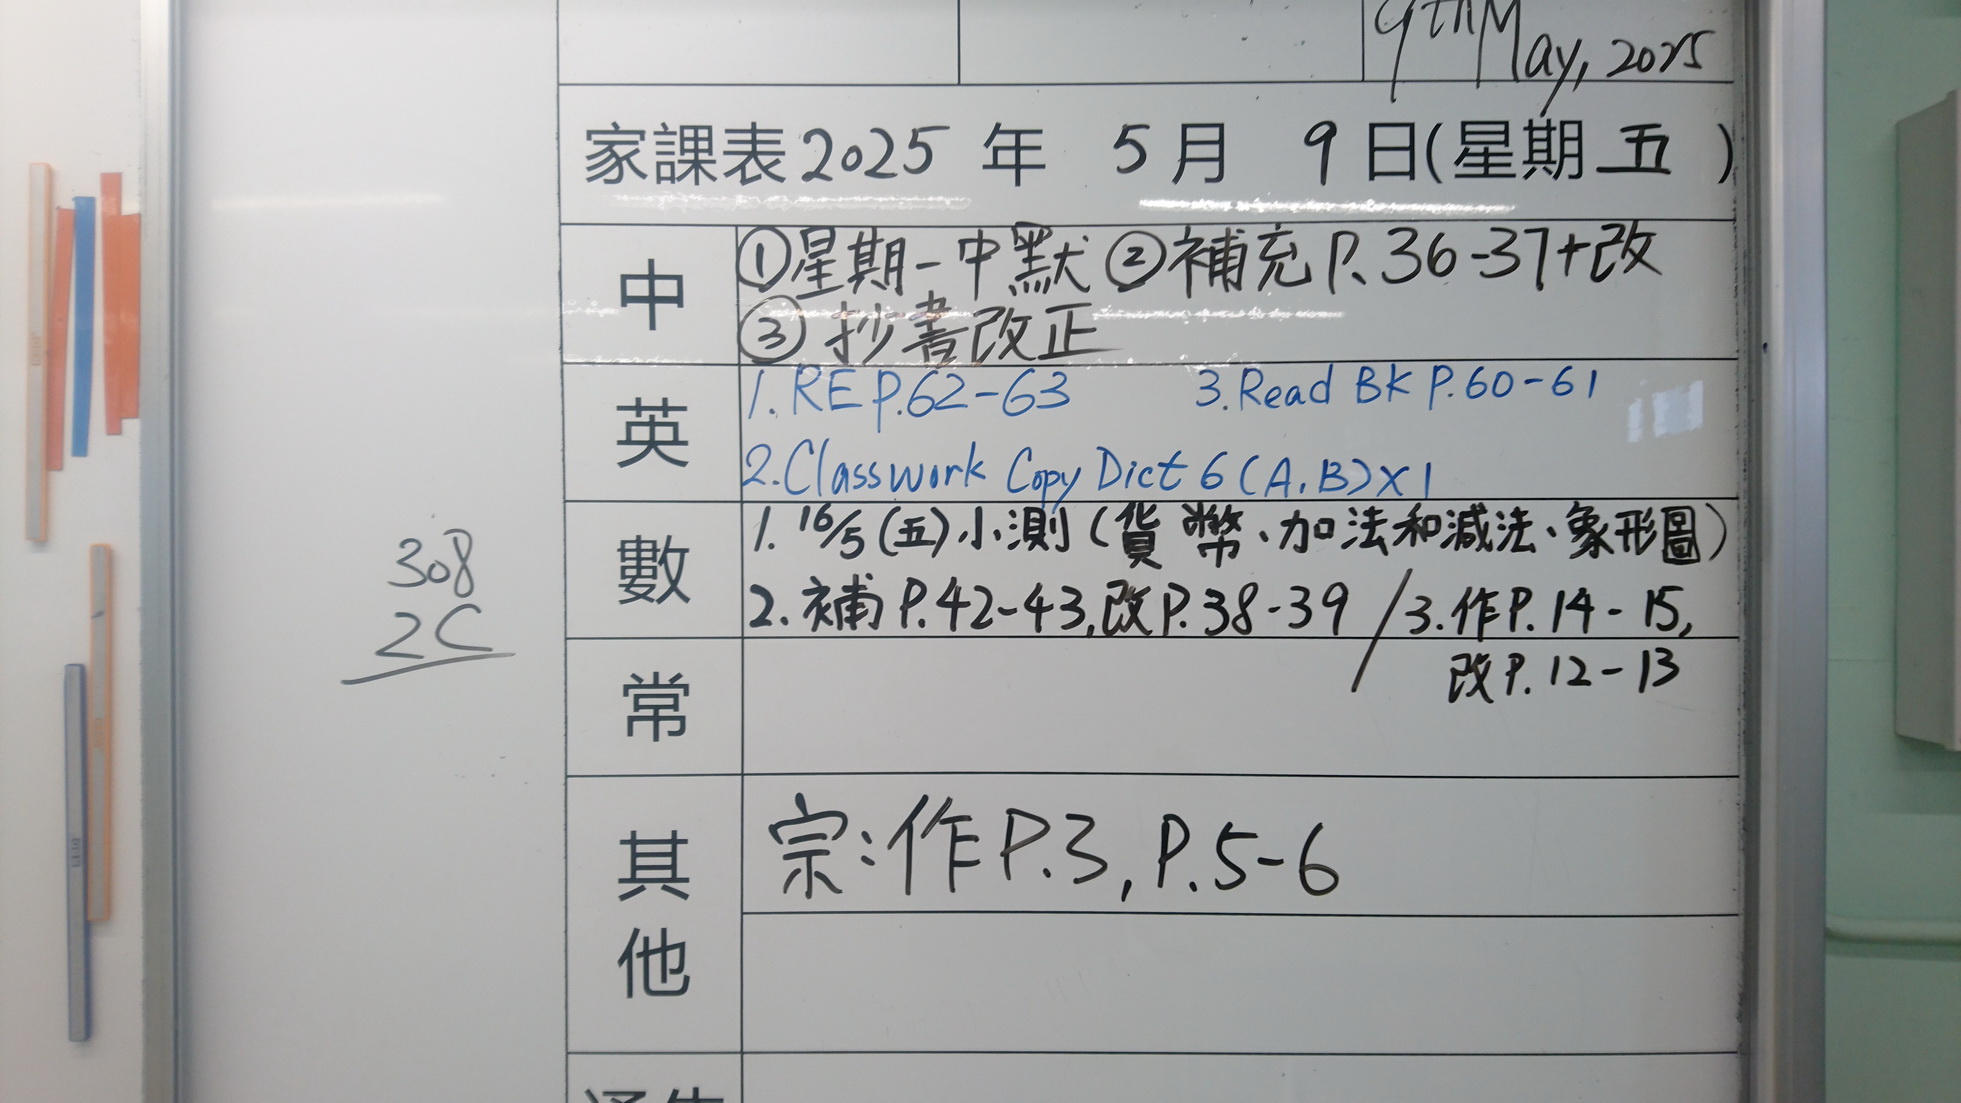 9th May, 2025
家課表2025 年 5 月 9 日(星期五)
中
①星期一中默 ②補充P.36-37+改
③抄書改正
英
1. RE P.62-63 3. Read BK P.60-61
2. Classwork Copy Dict 6 (A,B)x1
308
2C
數
1. 16/5 (五)小測(貨幣、加法和減法、象形圖)
2. 補P.42-43,改P.38-39 / 3.作P.14-15,
改P.12-13
常
其他
宗:作P.3, P.5-6